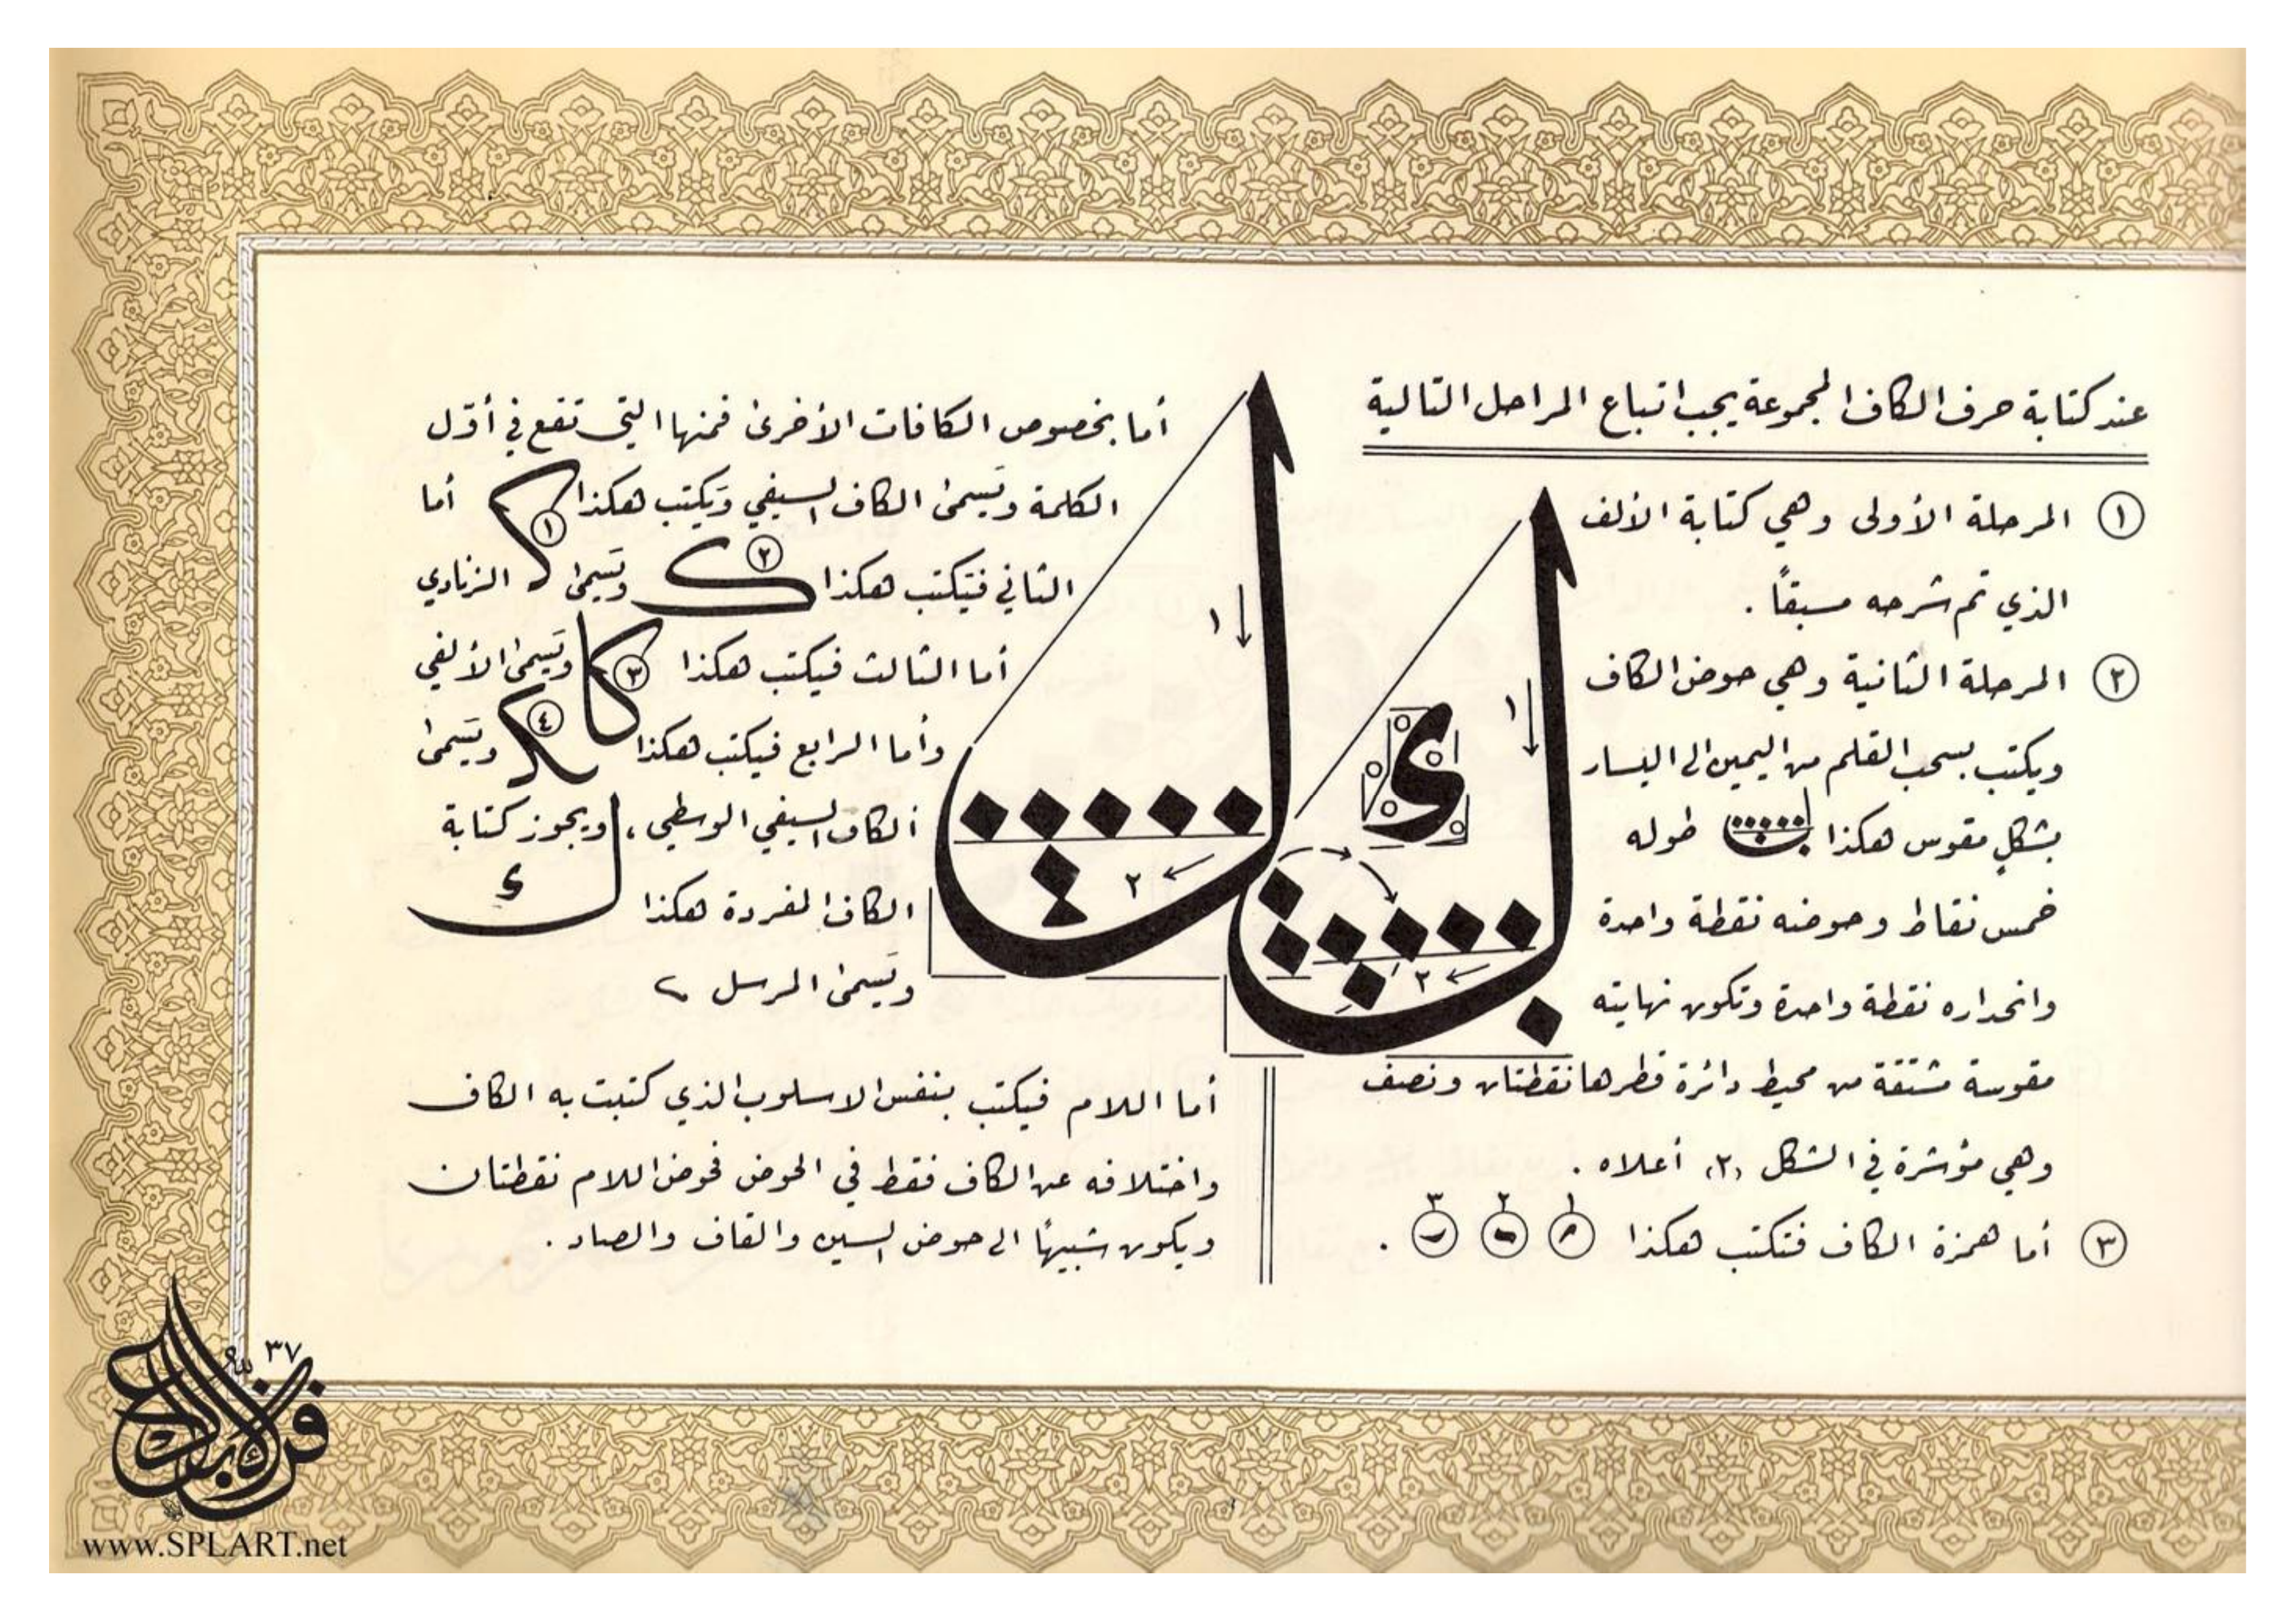 عند كتابة حرف الكاف المجموعة يجب اتباع المراحل التالية
١ المرحلة الأولى وهي كتابة الألف
الذي تم شرحه مسبقاً .
٢ المرحلة الثانية وهي حوض الكاف
ويكتب بسحب القلم من اليمين الى اليسار
بشكلٍ مقوس هكذا طوله
خمس نقاط وحوضه نقطة واحدة
وانحداره نقطة واحدة وتكون نهايته
مقوسة مشتقة من محيط دائرة قطرها نقطتان ونصف
وهي مؤشرة في الشكل (٢) أعلاه .
٣ أما همزة الكاف فتكتب هكذا ١ ٢ ٣ .
ك ل
١ ٢
١ ٢
أما بخصوص الكافات الأخرىٰ فمنها التي تقع في أوّل
الكلمة وتَسمىٰ الكاف السيفي وَيكتب هكذا ١ أما
الثاني فتيكتب هكذا ٢ وتَسمىٰ الزنادي
أما الثالث فيكتب هكذا ٣ وتَسمىٰ الألفي
وأما الرابع فيكتب هكذا ٤ وتَسمىٰ
ألكاف السيفي الوسطي ، ويجوز كتابة
الكاف المفردة هكذا ك
وتَسمىٰ المرسل
أما اللام فيكتب بنفس الاسلوب الذي كتبت به الكاف
واختلافه عن الكاف فقط في الحوض فحوض اللام نقطتان
ويكون شبيهاً الى حوض السين والقاف والصاد .
٣٧
www.SPLART.net